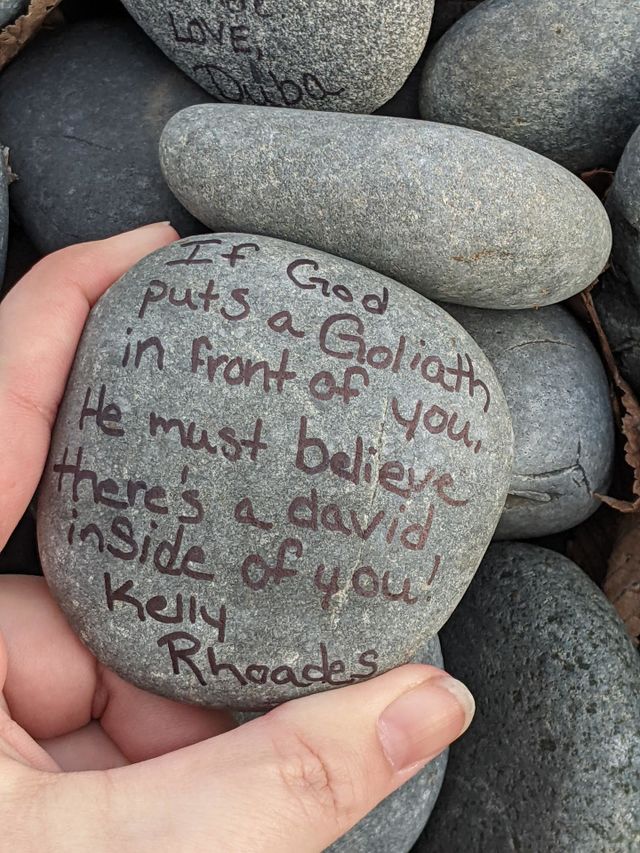 LOVE,
Duba
If God
puts a Goliath
in front of you,
He must believe
there's a david
inside of you!
Kelly
Rhoades